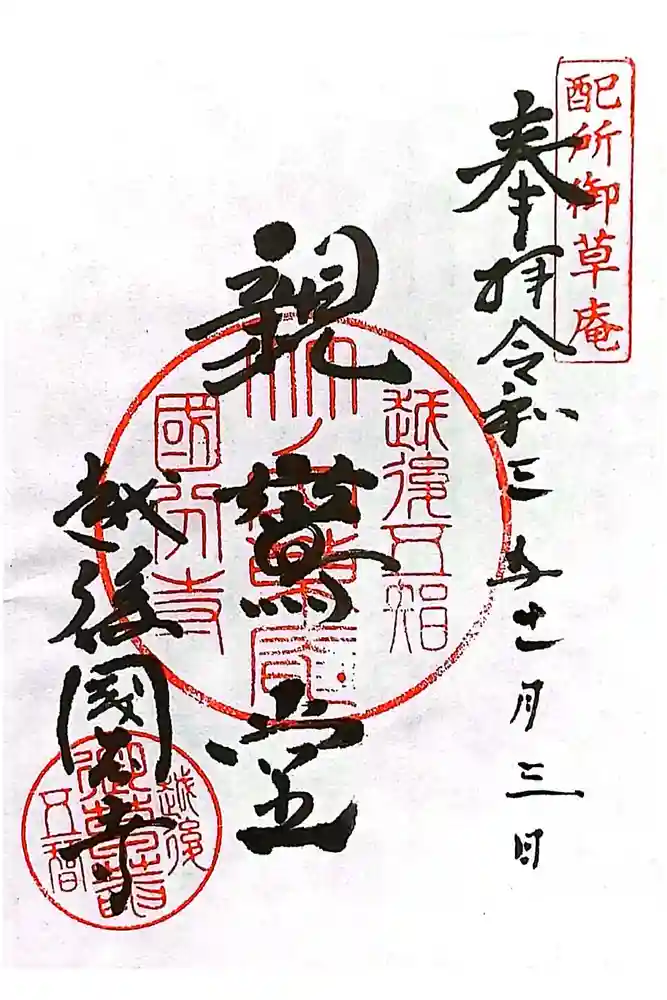 配所御草庵
奉拝令和三年十一月三日
親鸞堂
越後五智
国分寺
越後國分寺
越後
五智